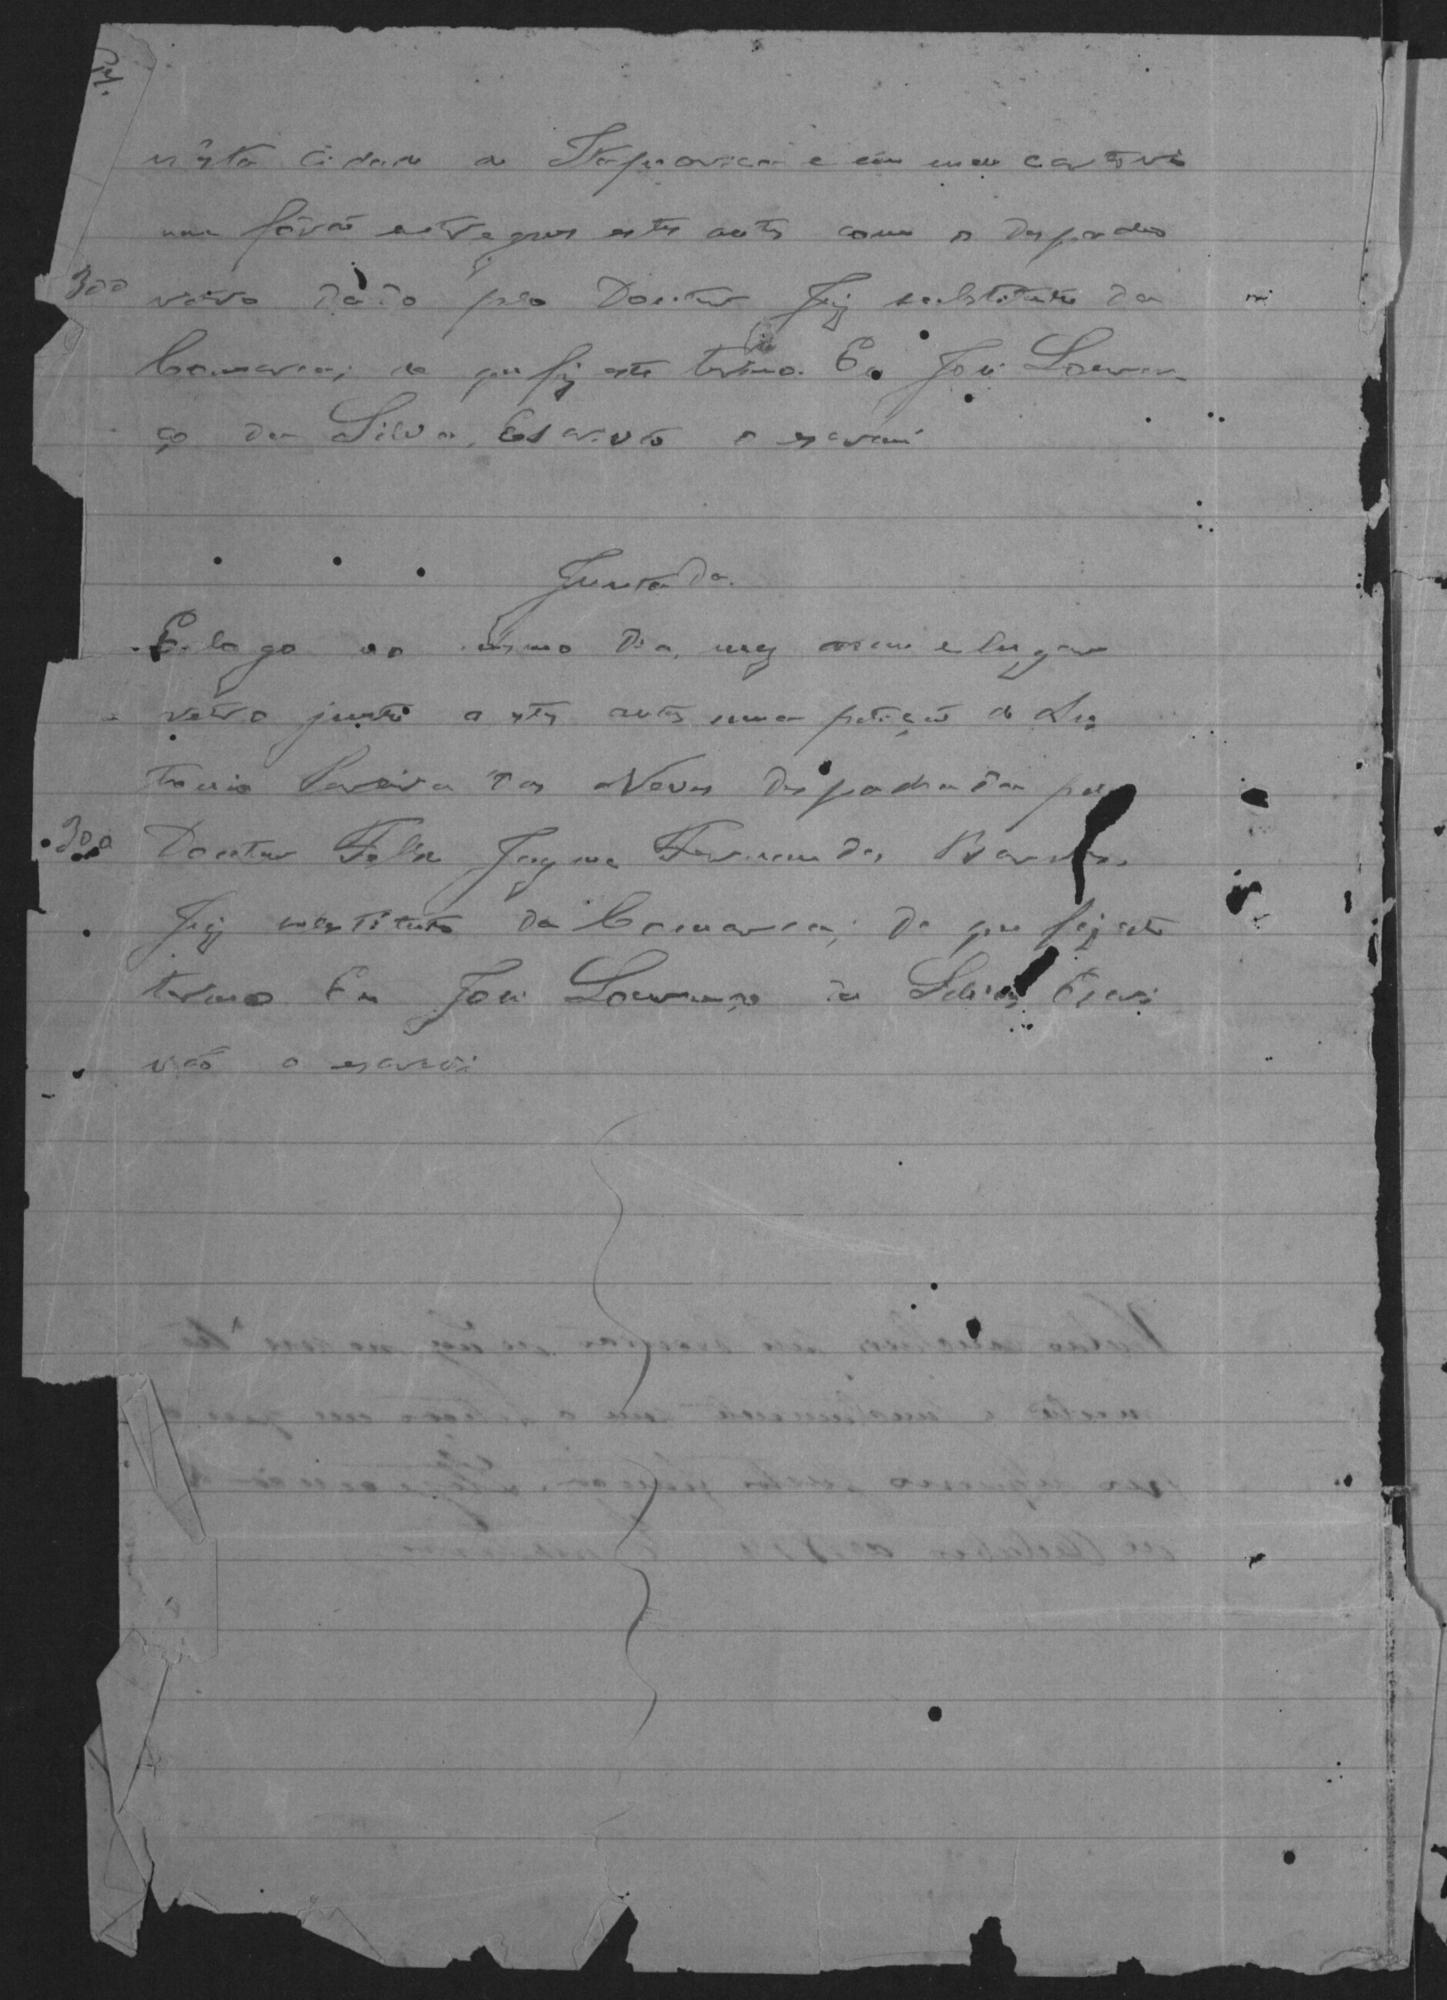 nésta Cidade de Itapearica e em meu cartorio
me fôrão entregues estes autos com o despacho
300 retro dado pelo Doutor Juiz substituto da
Comarca; do que fiz este termo. Eu José Louren
ço da Silva, Escrivão o escrevi
Juntada.
E logo no mesmo dia, mez anno e lugar
retro junto a estes autos uma petição de
Pereira das Neves despachada pelo
300 Doutor Felix Jayme Fernandes Barros,
Juiz substituto da Comarca; do que fiz este
termo Eu José Lourenço da Silva, Escri
vão o escrevi